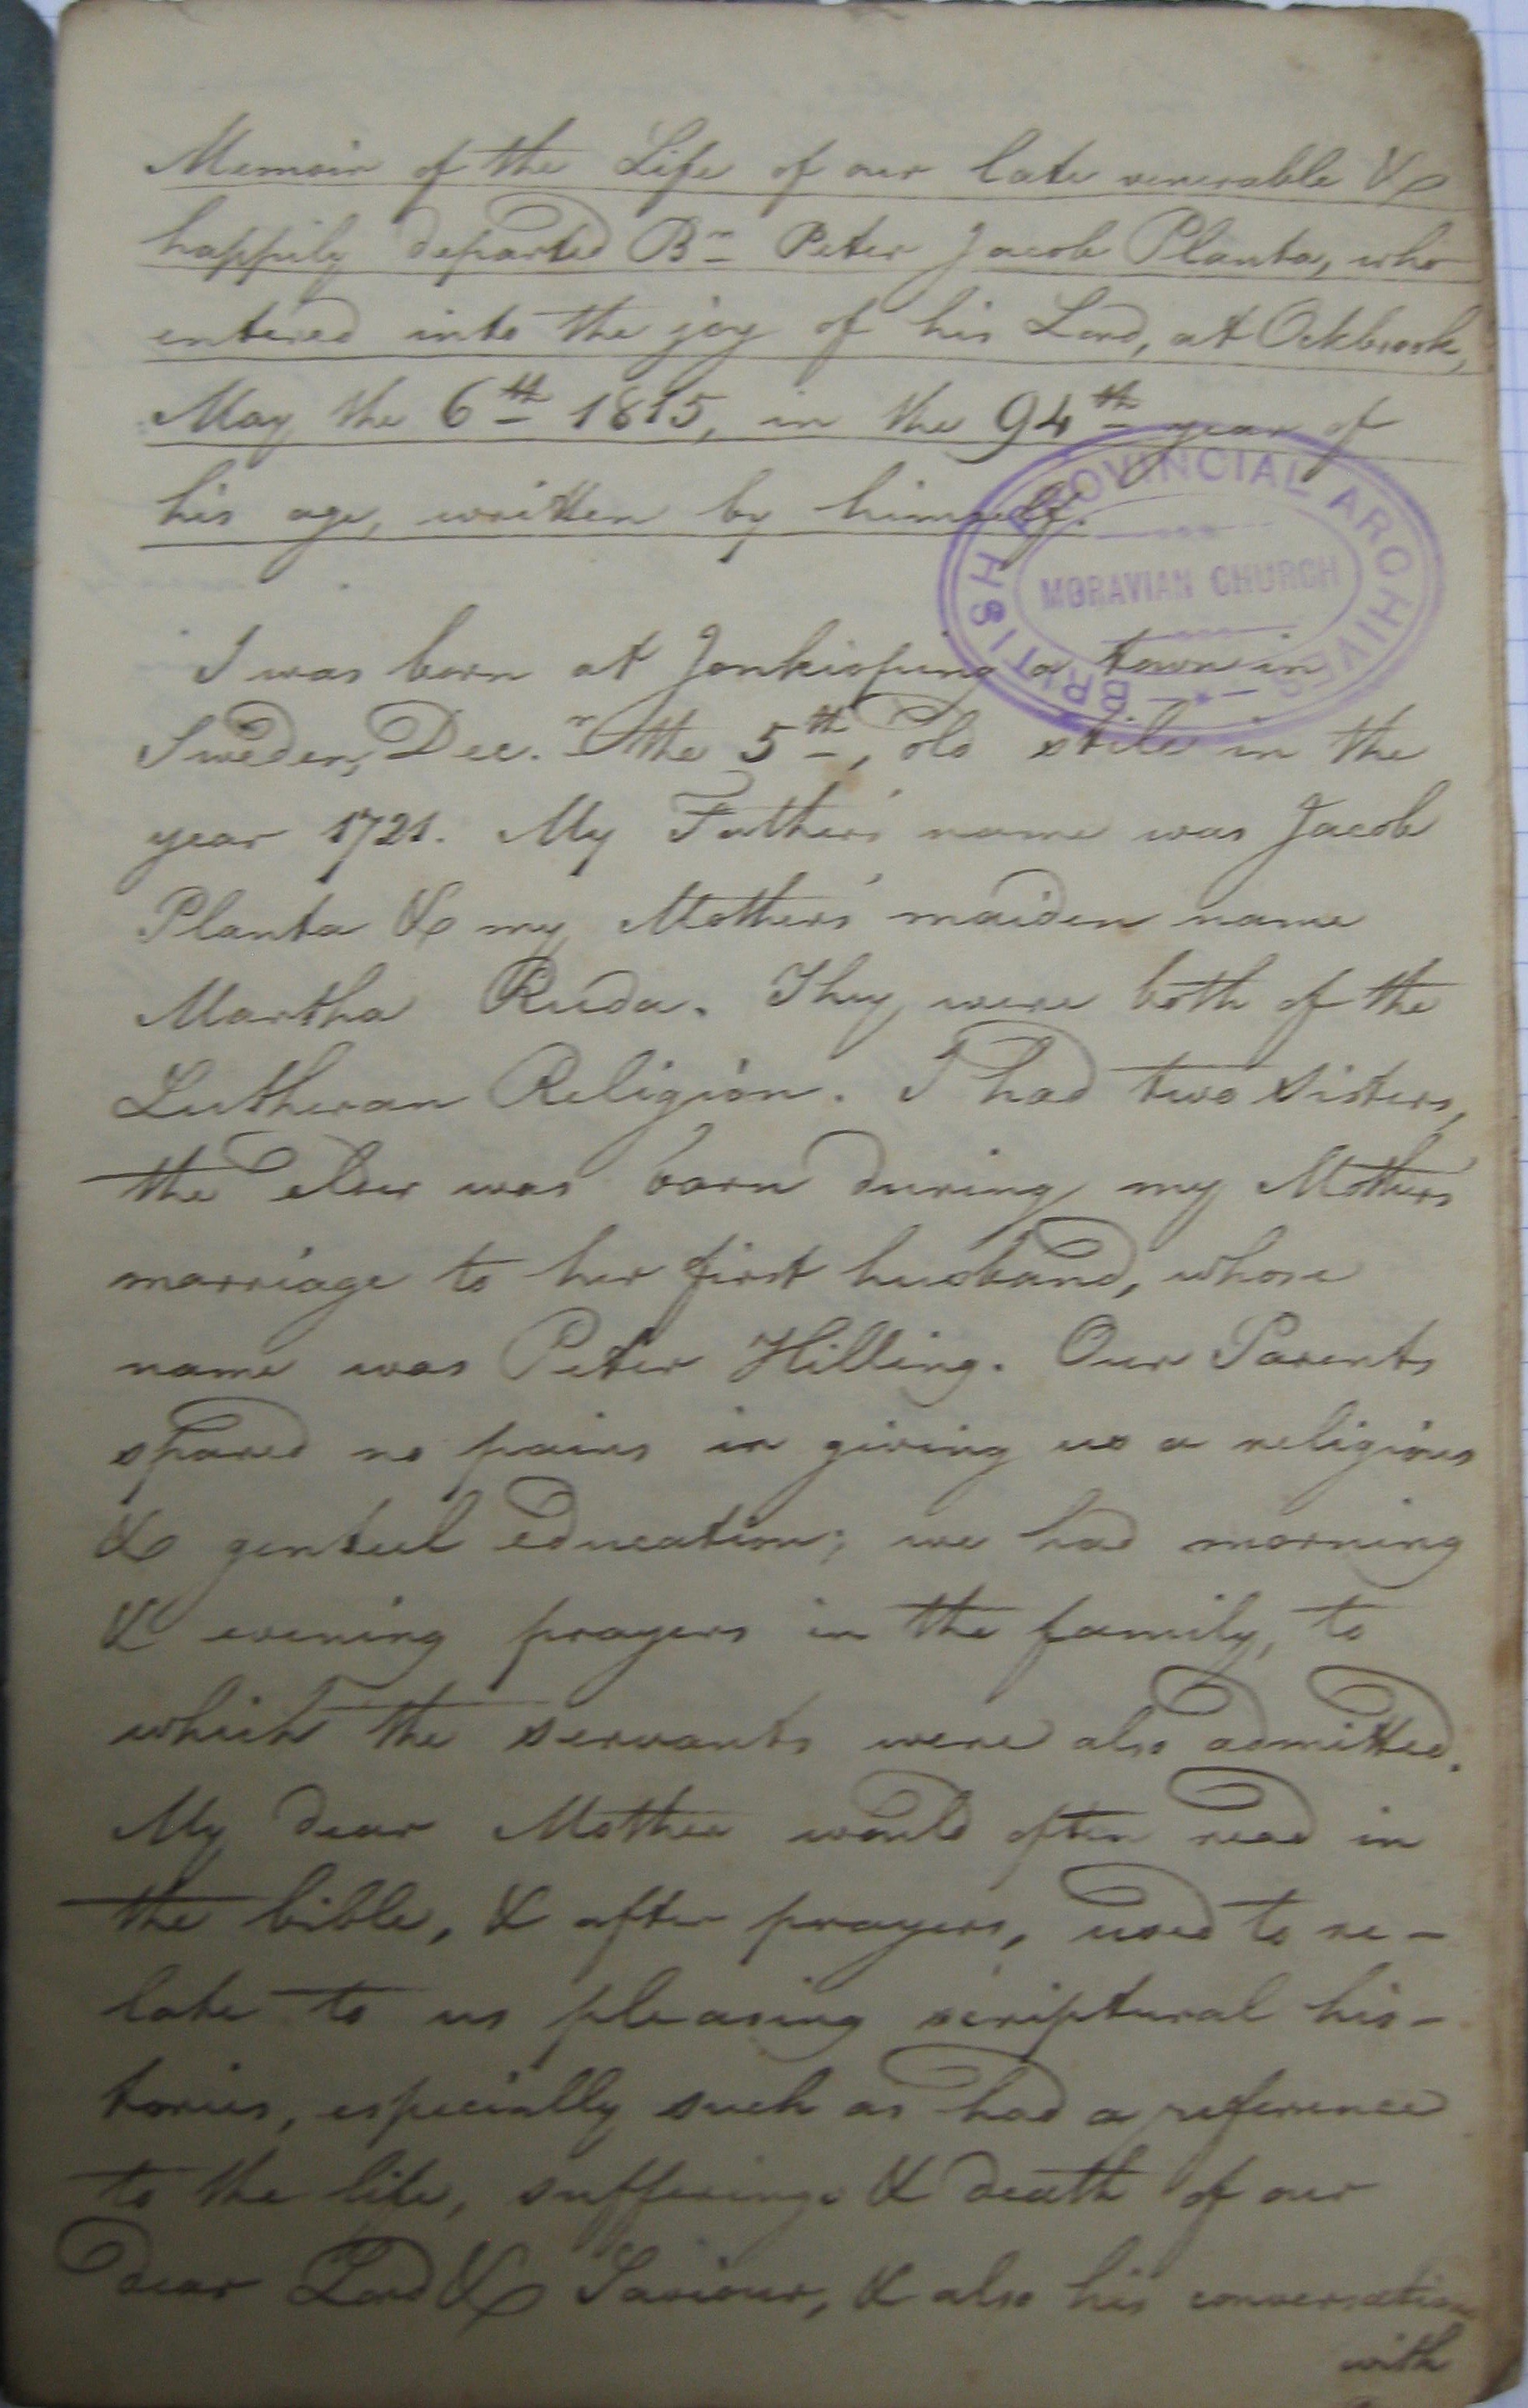 Memoir of the Life of our late venerable &
happily departed Br. Peter Jacob Planta, who
entered into the joy of his Lord, at Ockbrook,
May the 6th 1815, in the 94th year of
his age, written by himself.
BRITISH PROVINCIAL ARCHIVES
MORAVIAN CHURCH
I was born at Jonkioping a town in
Sweden, Decr. the 5th, old stile in the
year 1721. My Father's name was Jacob
Planta & my Mother's maiden name
Martha Ruda. They were both of the
Lutheran Religion. I had two sisters,
the elder was born during my Mothers
marriage to her first husband, whose
name was Peter Hilling. Our Parents
spared no pains in giving us a religious
& genteel education; we had morning
& evening prayers in the family, to
which the servants were also admitted.
My dear Mother would often read in
the bible, & after prayers, used to re-
late to us pleasing scriptural his-
tories, especially such as had a reference
to the life, sufferings & death of our
dear Lord & Saviour, & also his conversation
with